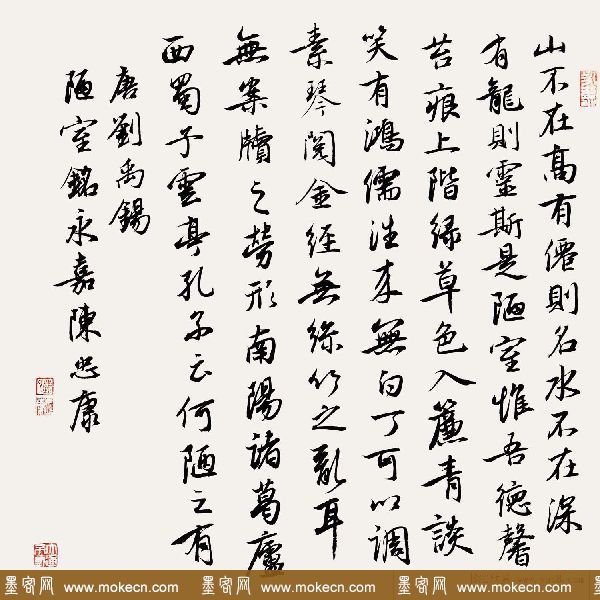 山不在高有僊則名水不在深
有龍則靈斯是陋室惟吾德馨
苔痕上階緑草色入簾青談
笑有鴻儒往來無白丁可以調
素琴閱金經無絲竹之亂耳
無案牘之勞形南陽諸葛廬
西蜀子雲亭孔子云何陋之有
唐劉禹錫
陋室銘永嘉陳忠康
墨客网 www.mokecn.com 墨客网 www.mokecn.com 墨客网 www.mokecn.com